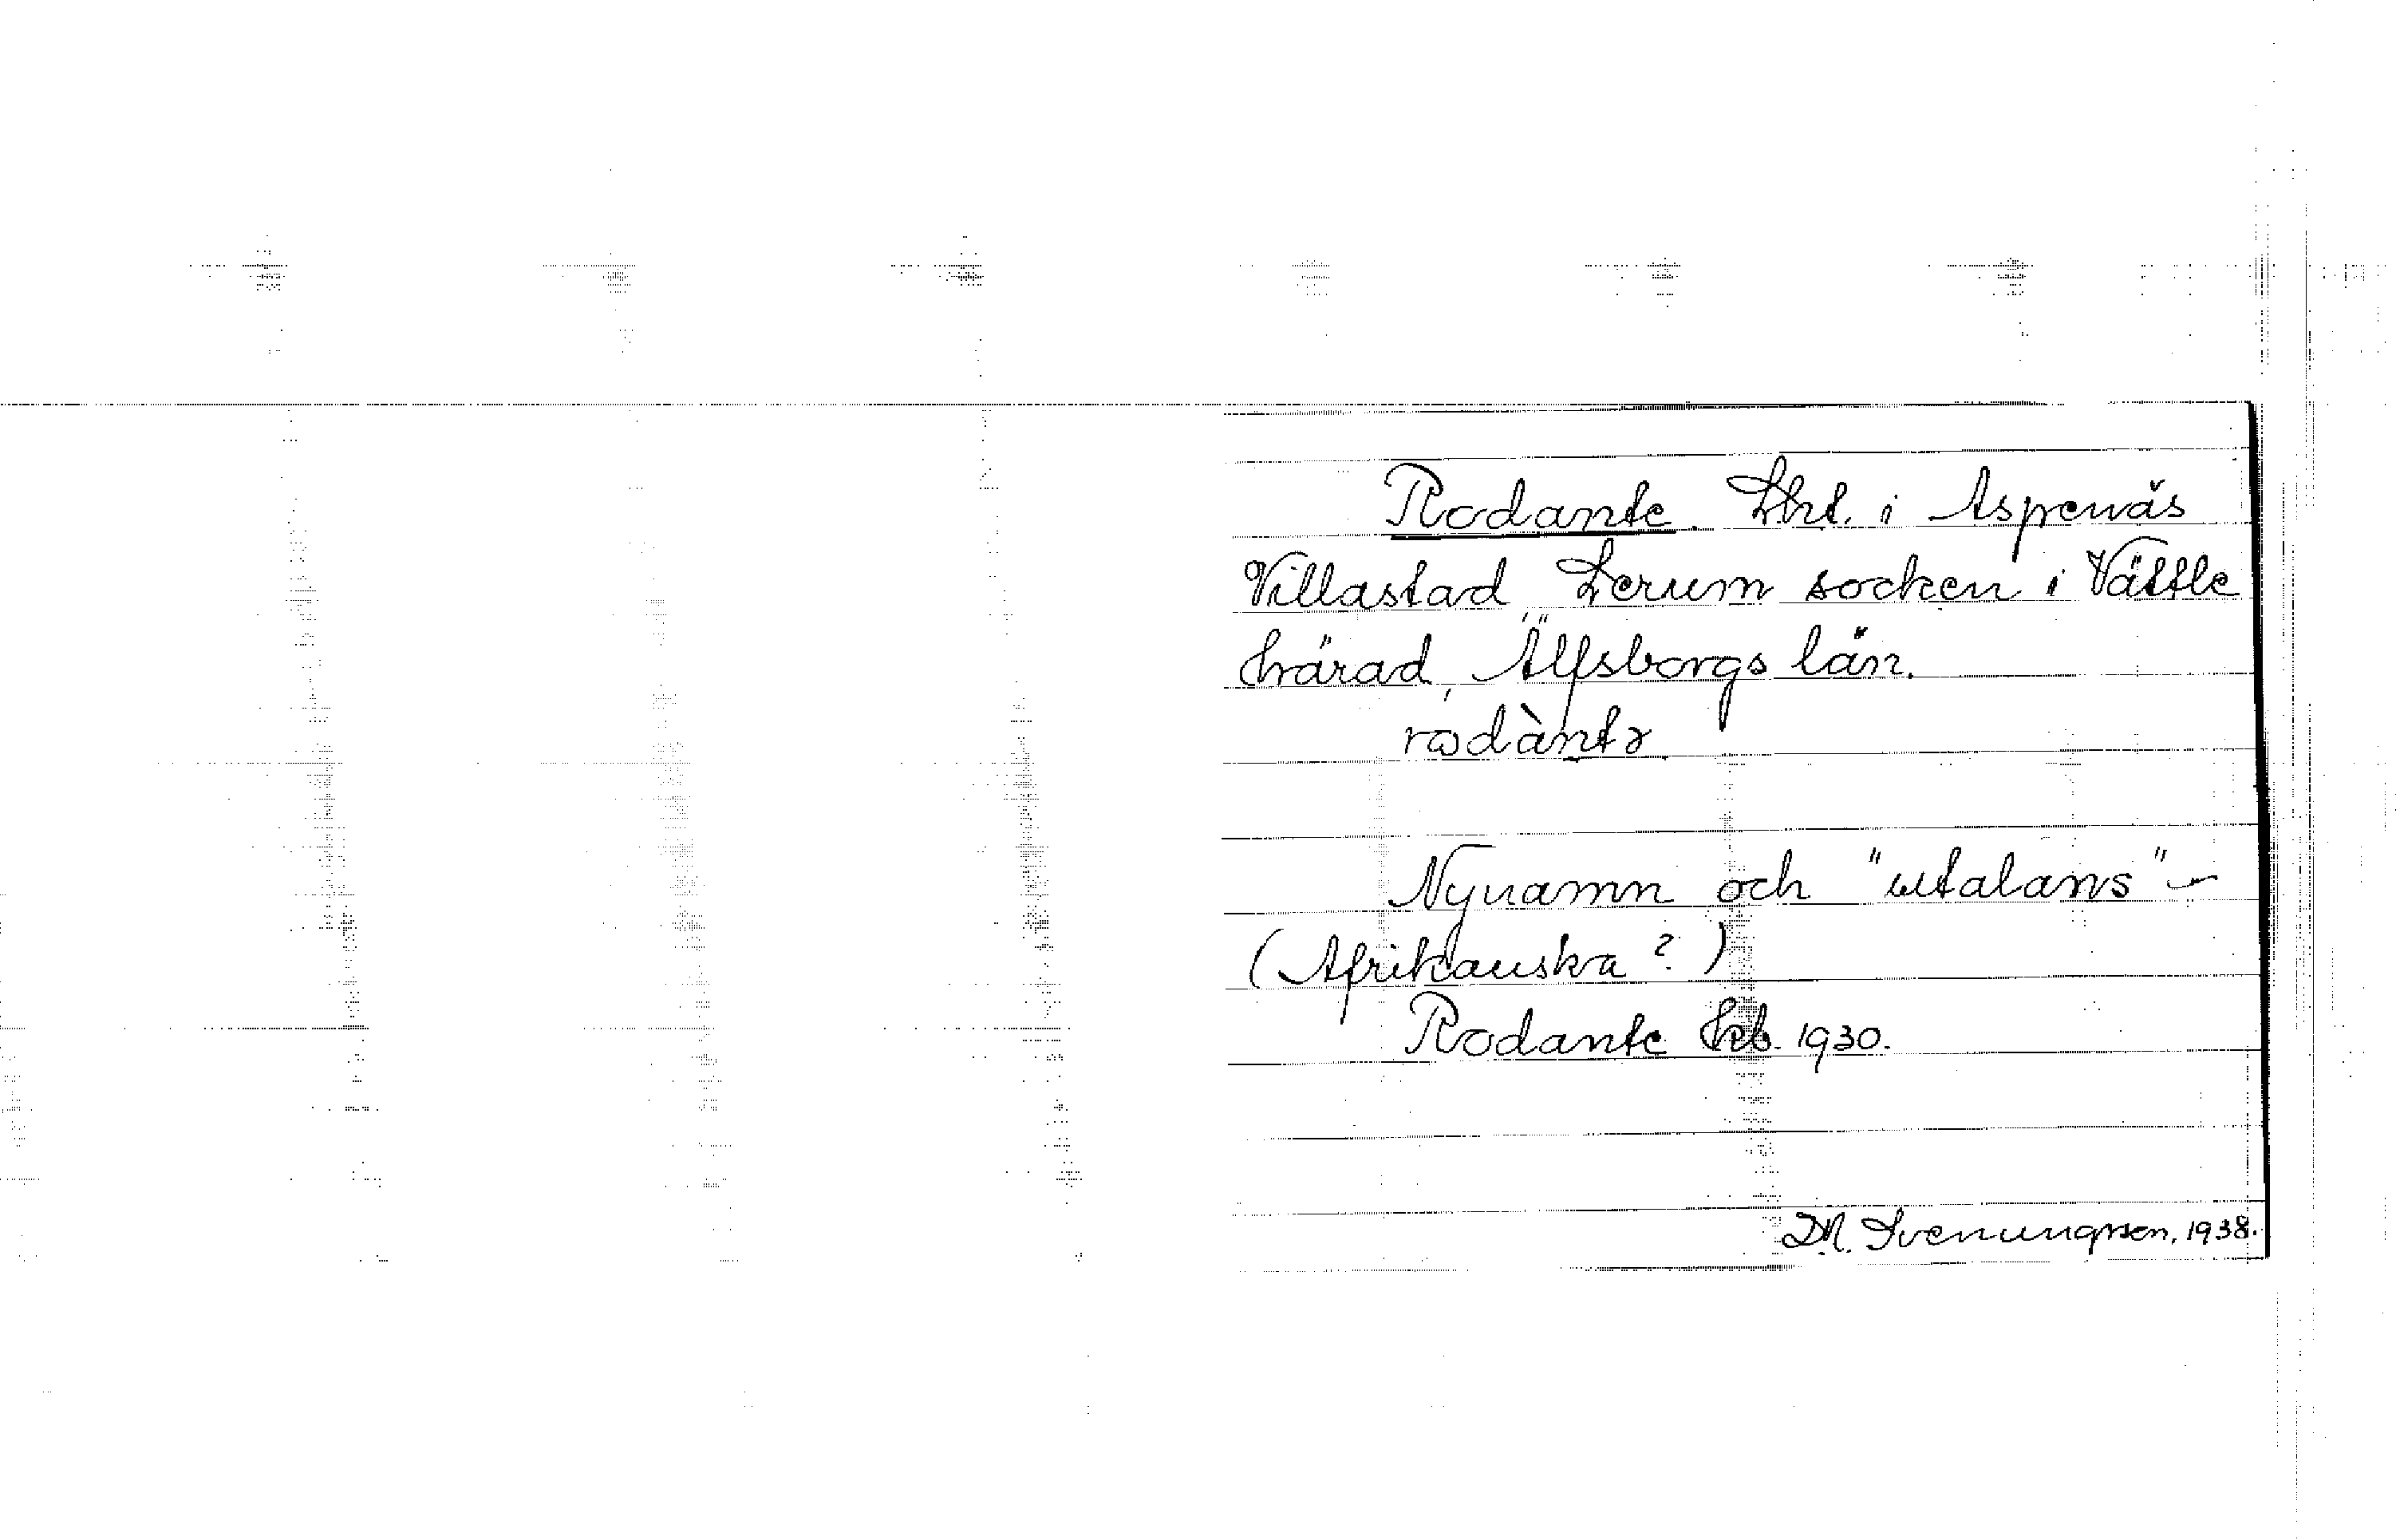 Rodante. Lht. i Aspenäs
Villastad, Lerum socken i Vättle
härad, Älfsborgs län.
rodàntə
Nynamn och "utalans" –
(Afrikanska?)
Rodante hfb. 1930.
D.M. Svenungsson, 1938.